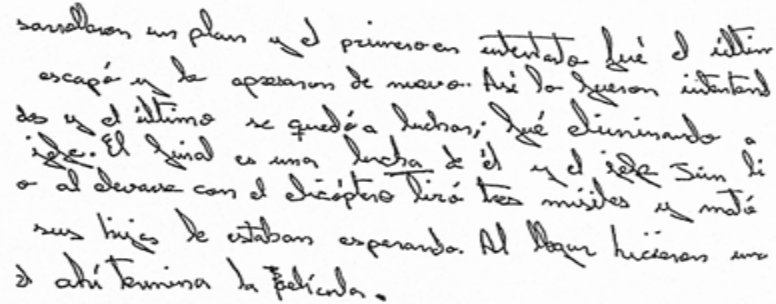 sarrollaron un plan y el primero en intentarlo fué el últim
escapó y le apresaron de nuevo. Así lo fueron intentand
dos y el último se quedó a luchar; fué eliminando a
jefe. El final es una lucha de él y el jefe sin li
o al elevarse con el elicóptero tiró tres misiles y mató
sus hijos le estaban esperando. Al llegar hicieron una
y ahí termina la película.